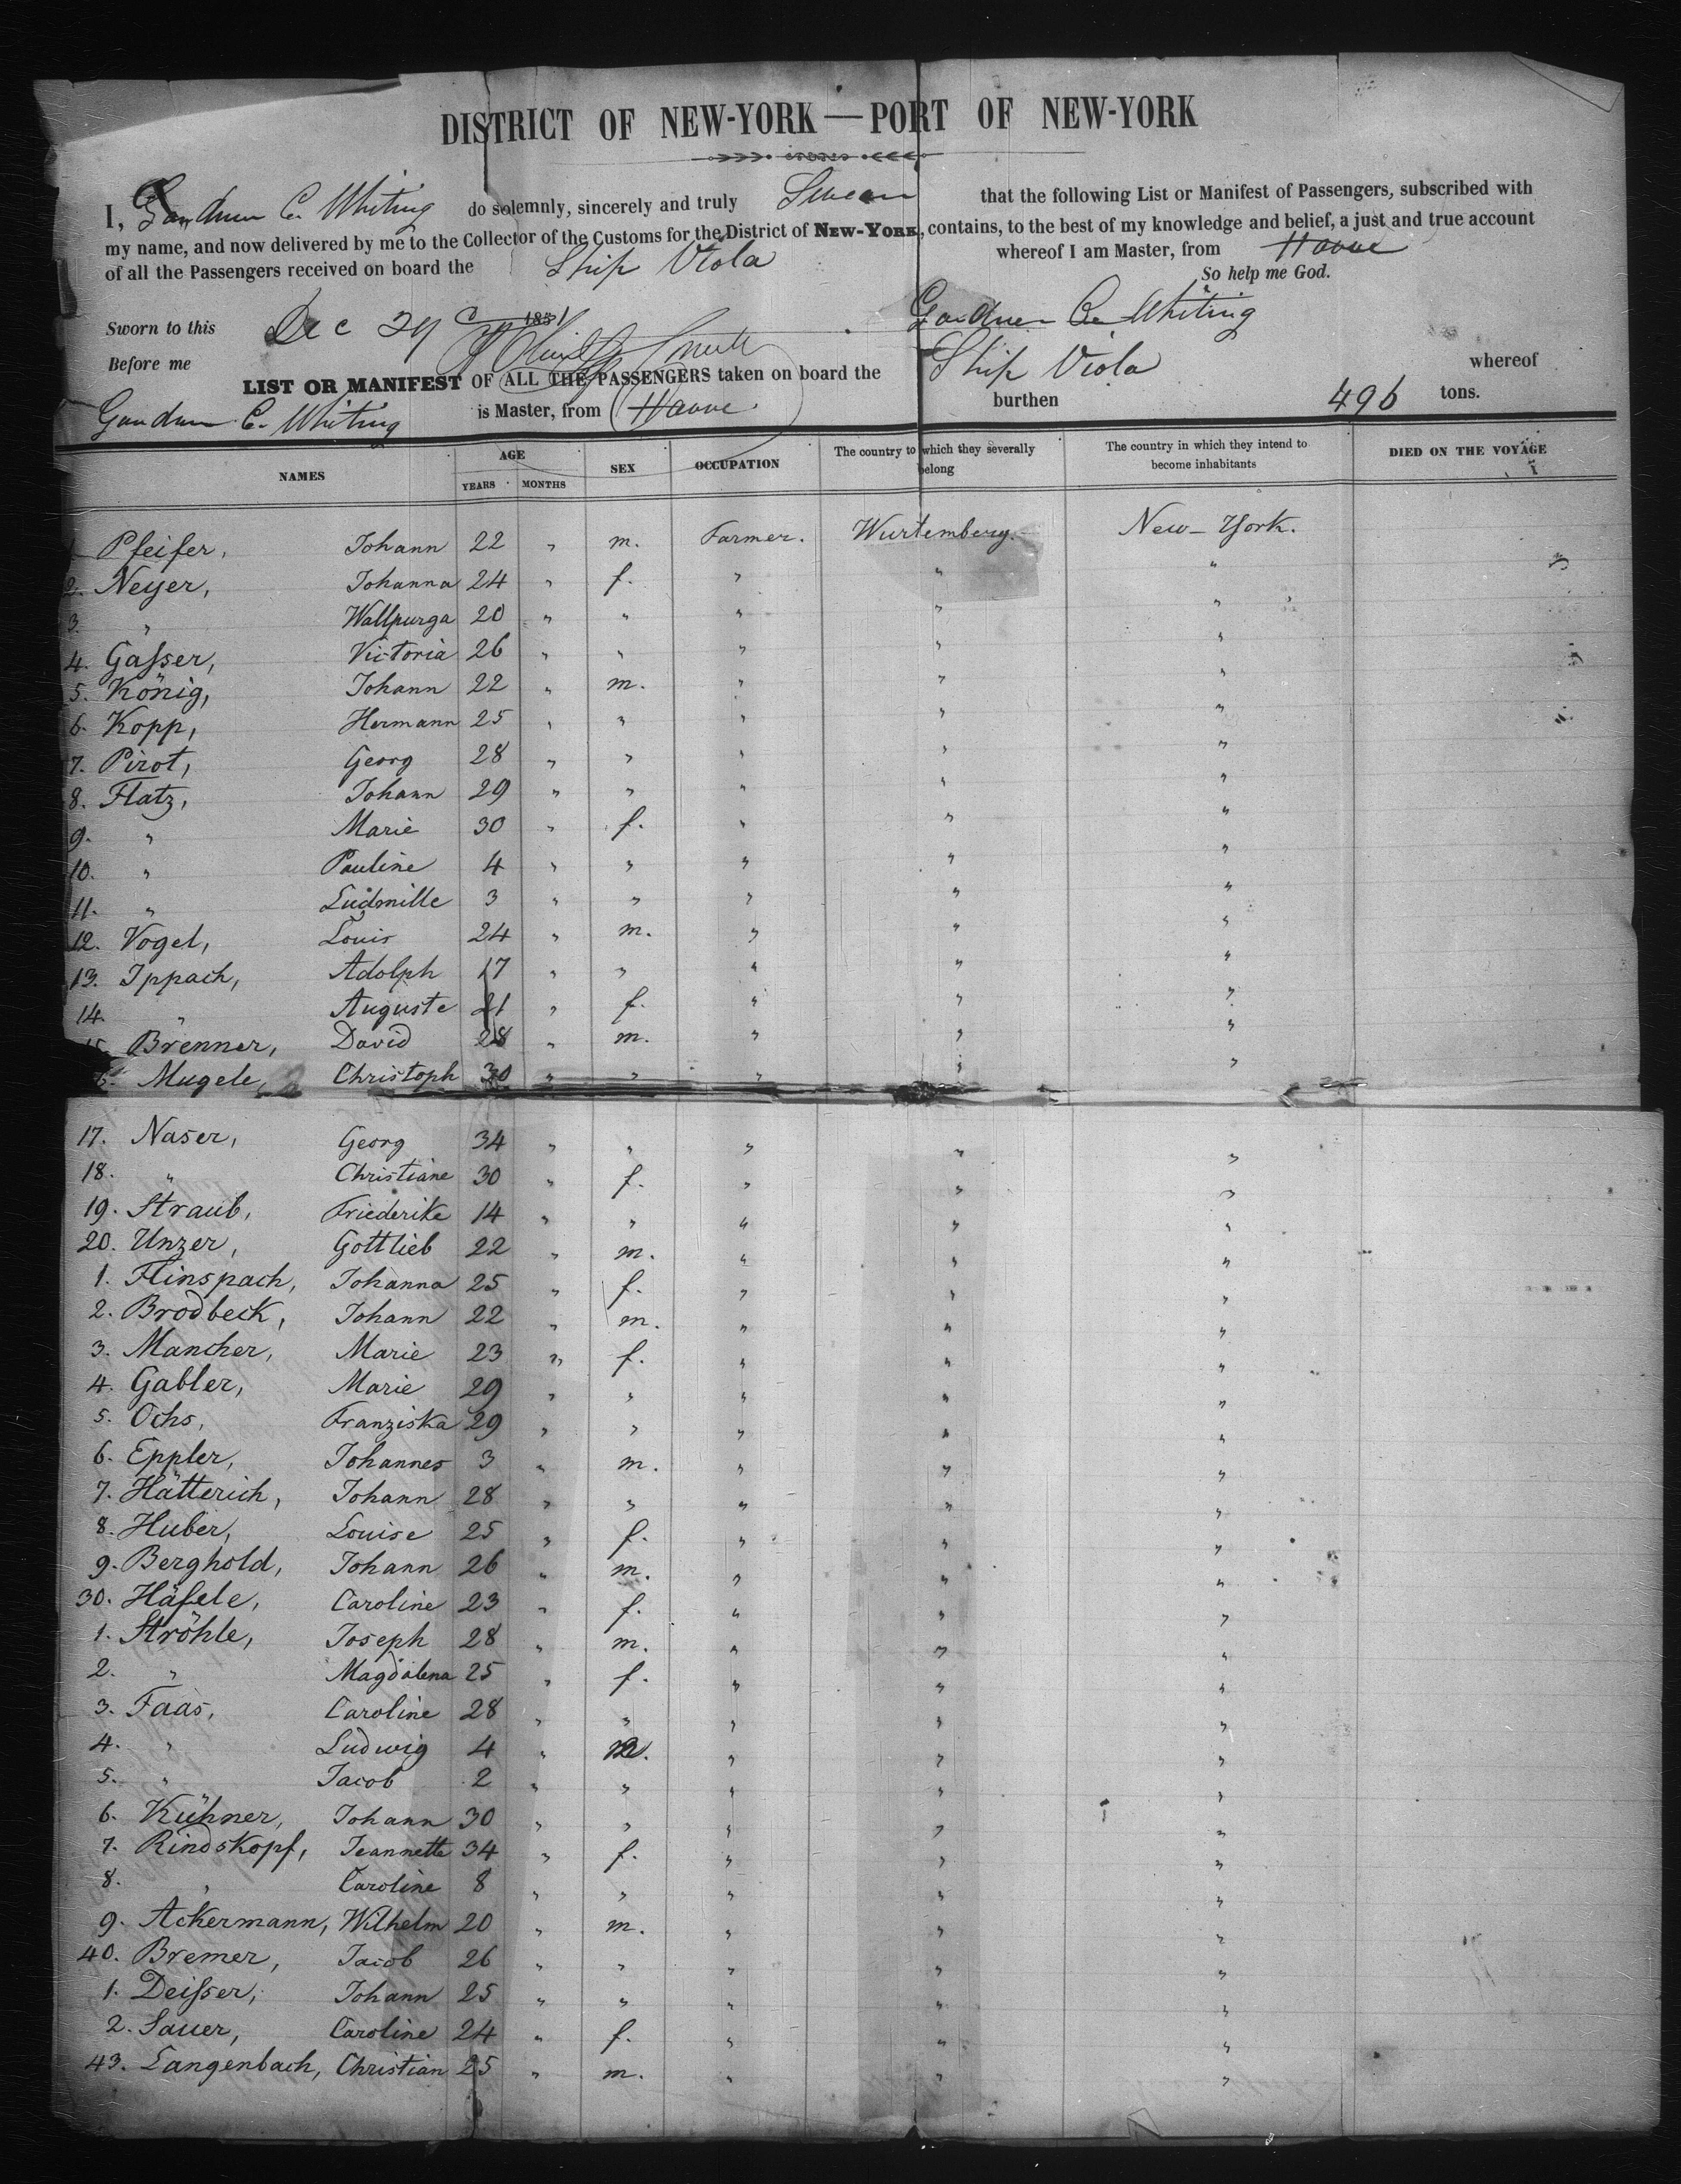 DISTRICT OF NEW-YORK — PORT OF NEW-YORK
I, Gardner C. Whiting do solemnly, sincerely and truly Swear that the following List or Manifest of Passengers, subscribed with
my name, and now delivered by me to the Collector of the Customs for the District of NEW-YORK, contains, to the best of my knowledge and belief, a just and true account
of all the Passengers received on board the Ship Viola whereof I am Master, from Havre
So help me God.
Sworn to this Dec 29 1851 Gardner C. Whiting
Before me
LIST OR MANIFEST OF ALL THE PASSENGERS taken on board the Ship Viola whereof
Gardner C. Whiting is Master, from Havre burthen 496 tons.
NAMES AGE YEARS MONTHS SEX OCCUPATION The country to which they severally belong The country in which they intend to become inhabitants DIED ON THE VOYAGE
1. Pfeifer, Johann 22 " m. Farmer. Wurtemberg. New-York.
2. Neyer, Johanna 24 " f. " " "
3. " Wallpurga 20 " " " " "
4. Gaſser, Victoria 26 " " " " "
5. König, Johann 22 " m. " " "
6. Kopp, Hermann 25 " " " " "
7. Pirot, Georg 28 " " " " "
8. Flatz, Johann 29 " " " " "
9. " Marie 30 " f. " " "
10. " Pauline 4 " " " " "
11. " Ludmille 3 " " " " "
12. Vogel, Louis 24 " m. " " "
13. Ippach, Adolph 17 " " " " "
14. " Auguste 21 " f. " " "
15. Brenner, David 28 " m. " " "
6. Mugele, Christoph 30 " " " " "
17. Naser, Georg 34 " " " " "
18. " Christiane 30 " f. " " "
19. Straub, Friederike 14 " " " " "
20. Unzer, Gottlieb 22 " m. " " "
1. Flinspach, Johanna 25 " f. " " "
2. Brodbeck, Johann 22 " m. " " "
3. Mancher, Marie 23 " f. " " "
4. Gabler, Marie 29 " " " " "
5. Ochs, Franziska 29 " " " " "
6. Eppler, Johannes 3 " m. " " "
7. Hätterich, Johann 28 " " " " "
8. Huber, Louise 25 " f. " " "
9. Berghold, Johann 26 " m. " " "
30. Häfele, Caroline 23 " f. " " "
1. Ströhle, Joseph 28 " m. " " "
2. " Magdalena 25 " f. " " "
3. Faas, Caroline 28 " " " " "
4. " Ludwig 4 " m. " " "
5. " Jacob 2 " " " " "
6. Kühner, Johann 30 " " " " "
7. Rindskopf, Jeannette 34 " f. " " "
8. " Caroline 8 " " " " "
9. Ackermann, Wilhelm 20 " m. " " "
40. Bremer, Jacob 26 " " " " "
1. Deiſser, Johann 25 " " " " "
2. Sauer, Caroline 24 " f. " " "
43. Langenbach, Christian 25 " m. " " "